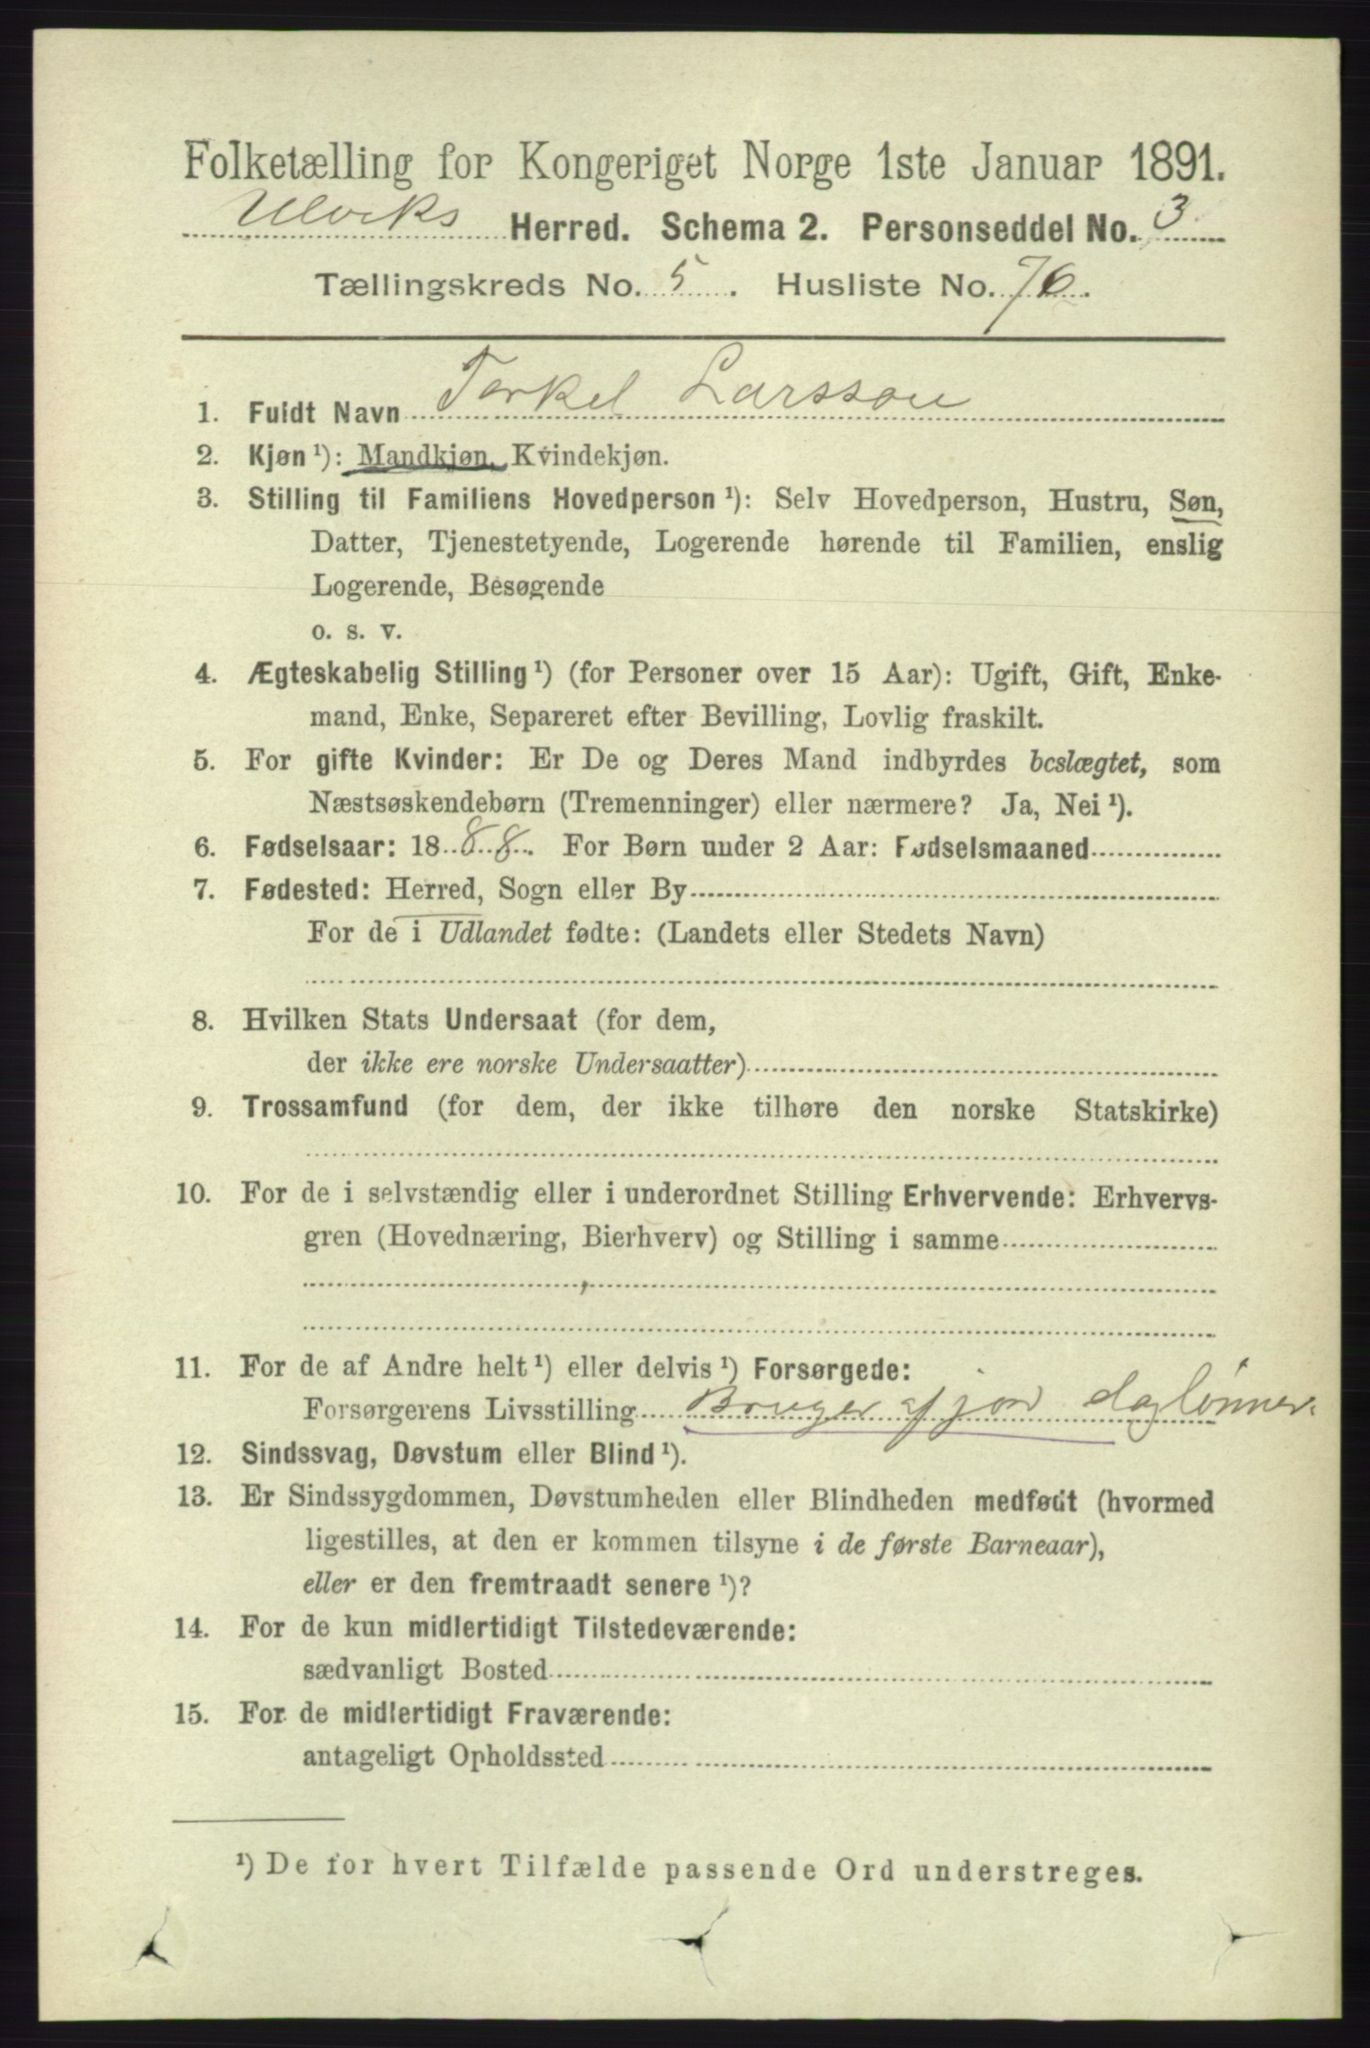 Folketælling for Kongeriget Norge 1ste Januar 1891.
Ulviks Herred. Schema 2. Personseddel No. 3
Tællingskreds No. 5. Husliste No. 76.
1. Fuldt Navn Torkel Larsson
2. Kjøn ¹): Mandkjøn, Kvindekjøn.
3. Stilling til Familiens Hovedperson ¹): Selv Hovedperson, Hustru, Søn,
Datter, Tjenestetyende, Logerende hørende til Familien, enslig
Logerende, Besøgende
o. s. v.
4. Ægteskabelig Stilling ¹) (for Personer over 15 Aar): Ugift, Gift, Enke-
mand, Enke, Separeret efter Bevilling, Lovlig fraskilt.
5. For gifte Kvinder: Er De og Deres Mand indbyrdes beslægtet, som
Næstsøskendebørn (Tremenninger) eller nærmere? Ja, Nei ¹).
6. Fødselsaar: 1888. For Børn under 2 Aar: Fødselsmaaned
7. Fødested: Herred, Sogn eller By
For de i Udlandet fødte: (Landets eller Stedets Navn)
8. Hvilken Stats Undersaat (for dem,
der ikke ere norske Undersaatter)
9. Trossamfund (for dem, der ikke tilhøre den norske Statskirke)
10. For de i selvstændig eller i underordnet Stilling Erhvervende: Erhvervs-
gren (Hovednæring, Bierhverv) og Stilling i samme
11. For de af Andre helt ¹) eller delvis ¹) Forsørgede:
Forsørgerens Livsstilling Bruger af jord daglønner.
12. Sindssvag, Døvstum eller Blind ¹).
13. Er Sindssygdommen, Døvstumheden eller Blindheden medfødt (hvormed
ligestilles, at den er kommen tilsyne i de første Barneaar),
eller er den fremtraadt senere ¹)?
14. For de kun midlertidigt Tilstedeværende:
sædvanligt Bosted
15. For de midlertidigt Fraværende:
antageligt Opholdssted
¹) De for hvert Tilfælde passende Ord understreges.